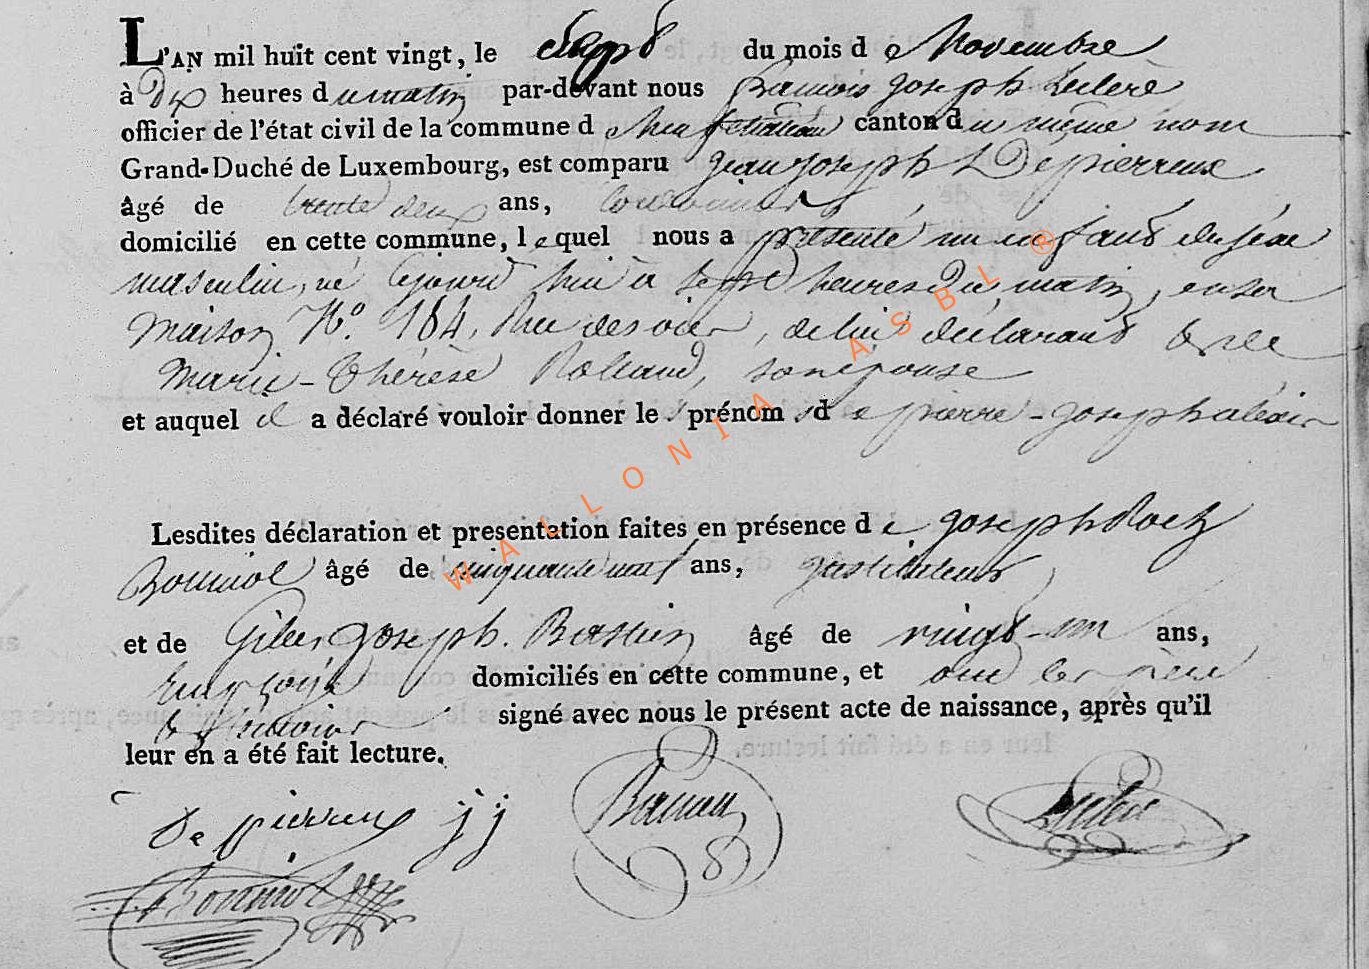 L'AN mil huit cent vingt, le sept du mois de Novembre
à Dix heures du matin par-devant nous François Joseph Leclerc
officier de l'état civil de la commune de Neufchateau canton du même nom
Grand-Duché de Luxembourg, est comparu Jean Joseph Depierreux
âgé de trente deux ans, cordonnier
domicilié en cette commune, lequel nous a présenté un enfant du sexe
masculin, né cejourd'hui à sept heures du matin, en sa
maison N.o 184, Rue , de lui déclarant et de
Marie-Thérèse Rolland, son épouse
et auquel il a déclaré vouloir donner les prénoms de pierre-joseph alexis
Lesdites déclaration et presentation faites en présence de joseph
Bonniol âgé de cinquante neuf ans, instituteur
et de Joseph. Bastin âgé de vingt-un ans,
domiciliés en cette commune, et ont les père
et témoins signé avec nous le présent acte de naissance, après qu'il
leur en a été fait lecture.
De pierreux j j
Bonniol
WALLONIA ASBL ®